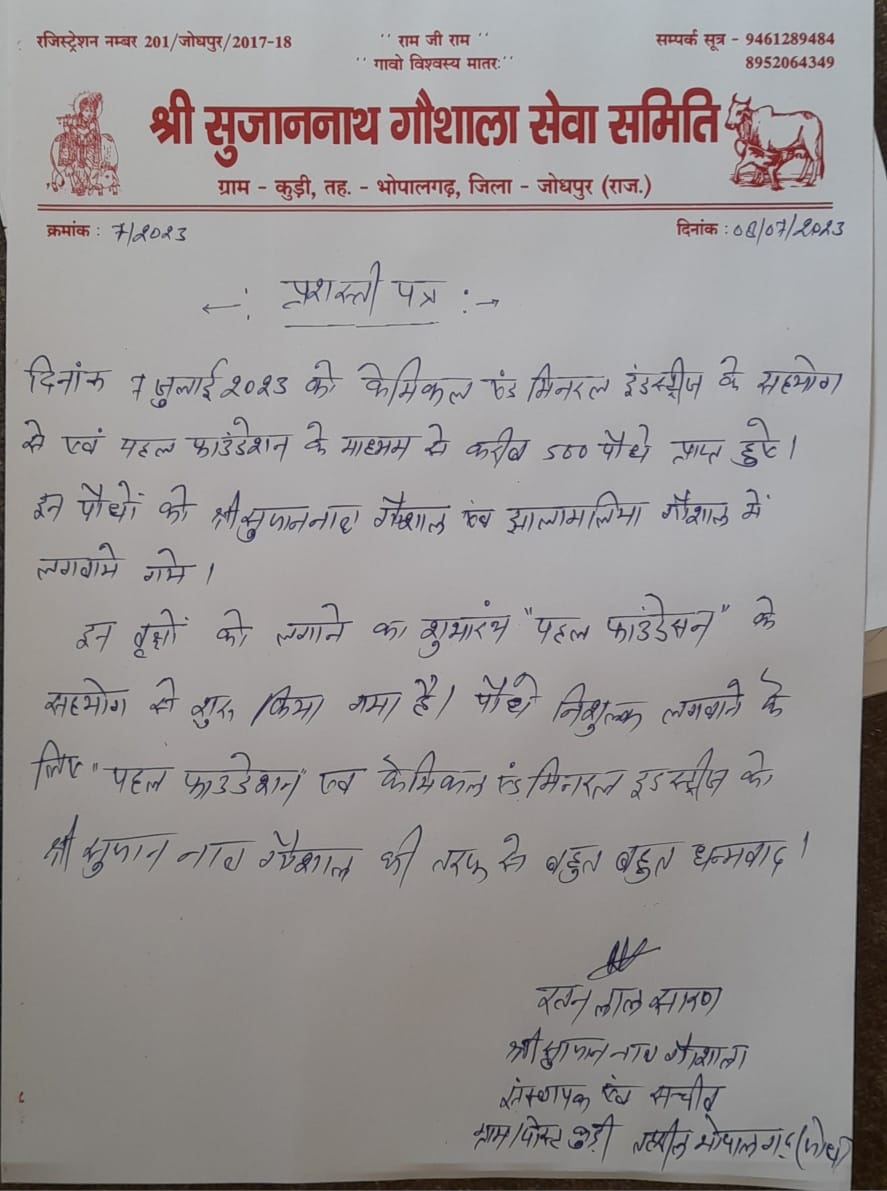 रजिस्ट्रेशन नम्बर 201/जोधपुर/2017-18
'' राम जी राम ''
'' गावो विश्वस्य मातरः''
सम्पर्क सूत्र - 9461289484
8952064349
श्री सुजाननाथ गौशाला सेवा समिति
ग्राम - कुड़ी, तह. - भोपालगढ़, जिला - जोधपुर (राज.)
क्रमांक : 7/2023
दिनांक : 08/07/2023
←: प्रशस्ती पत्र :→
दिनांक 7 जुलाई 2023 को केमिकल एंड मिनरल इंडस्ट्रीज के सहयोग
से एवं पहल फाउंडेशन के माध्यम से करीब 500 पौधे प्राप्त हुए।
इन पौधों को श्री सुजान नाथ गौशाल एंव झालामलिया गौशाल में
लगवाये गये।
इन वृक्षों को लगाने का शुभारंभ "पहल फाउंडेसन" के
सहयोग से शुरू किया गया है। पौधे निशुल्क लगवाने के
लिए "पहल फाउडेशन" एव केमिकल एंड मिनरल इडस्ट्रीज को
श्री सुजान नाथ गौशाल की तरफ से बहुत बहुत धन्यवाद।
रतन लाल सारण
श्री सुजान नाथ गौशाला
संस्थापक एंव सचीव
ग्राम/पोस्ट कुड़ी तहसील भोपालगढ़ (जोध)